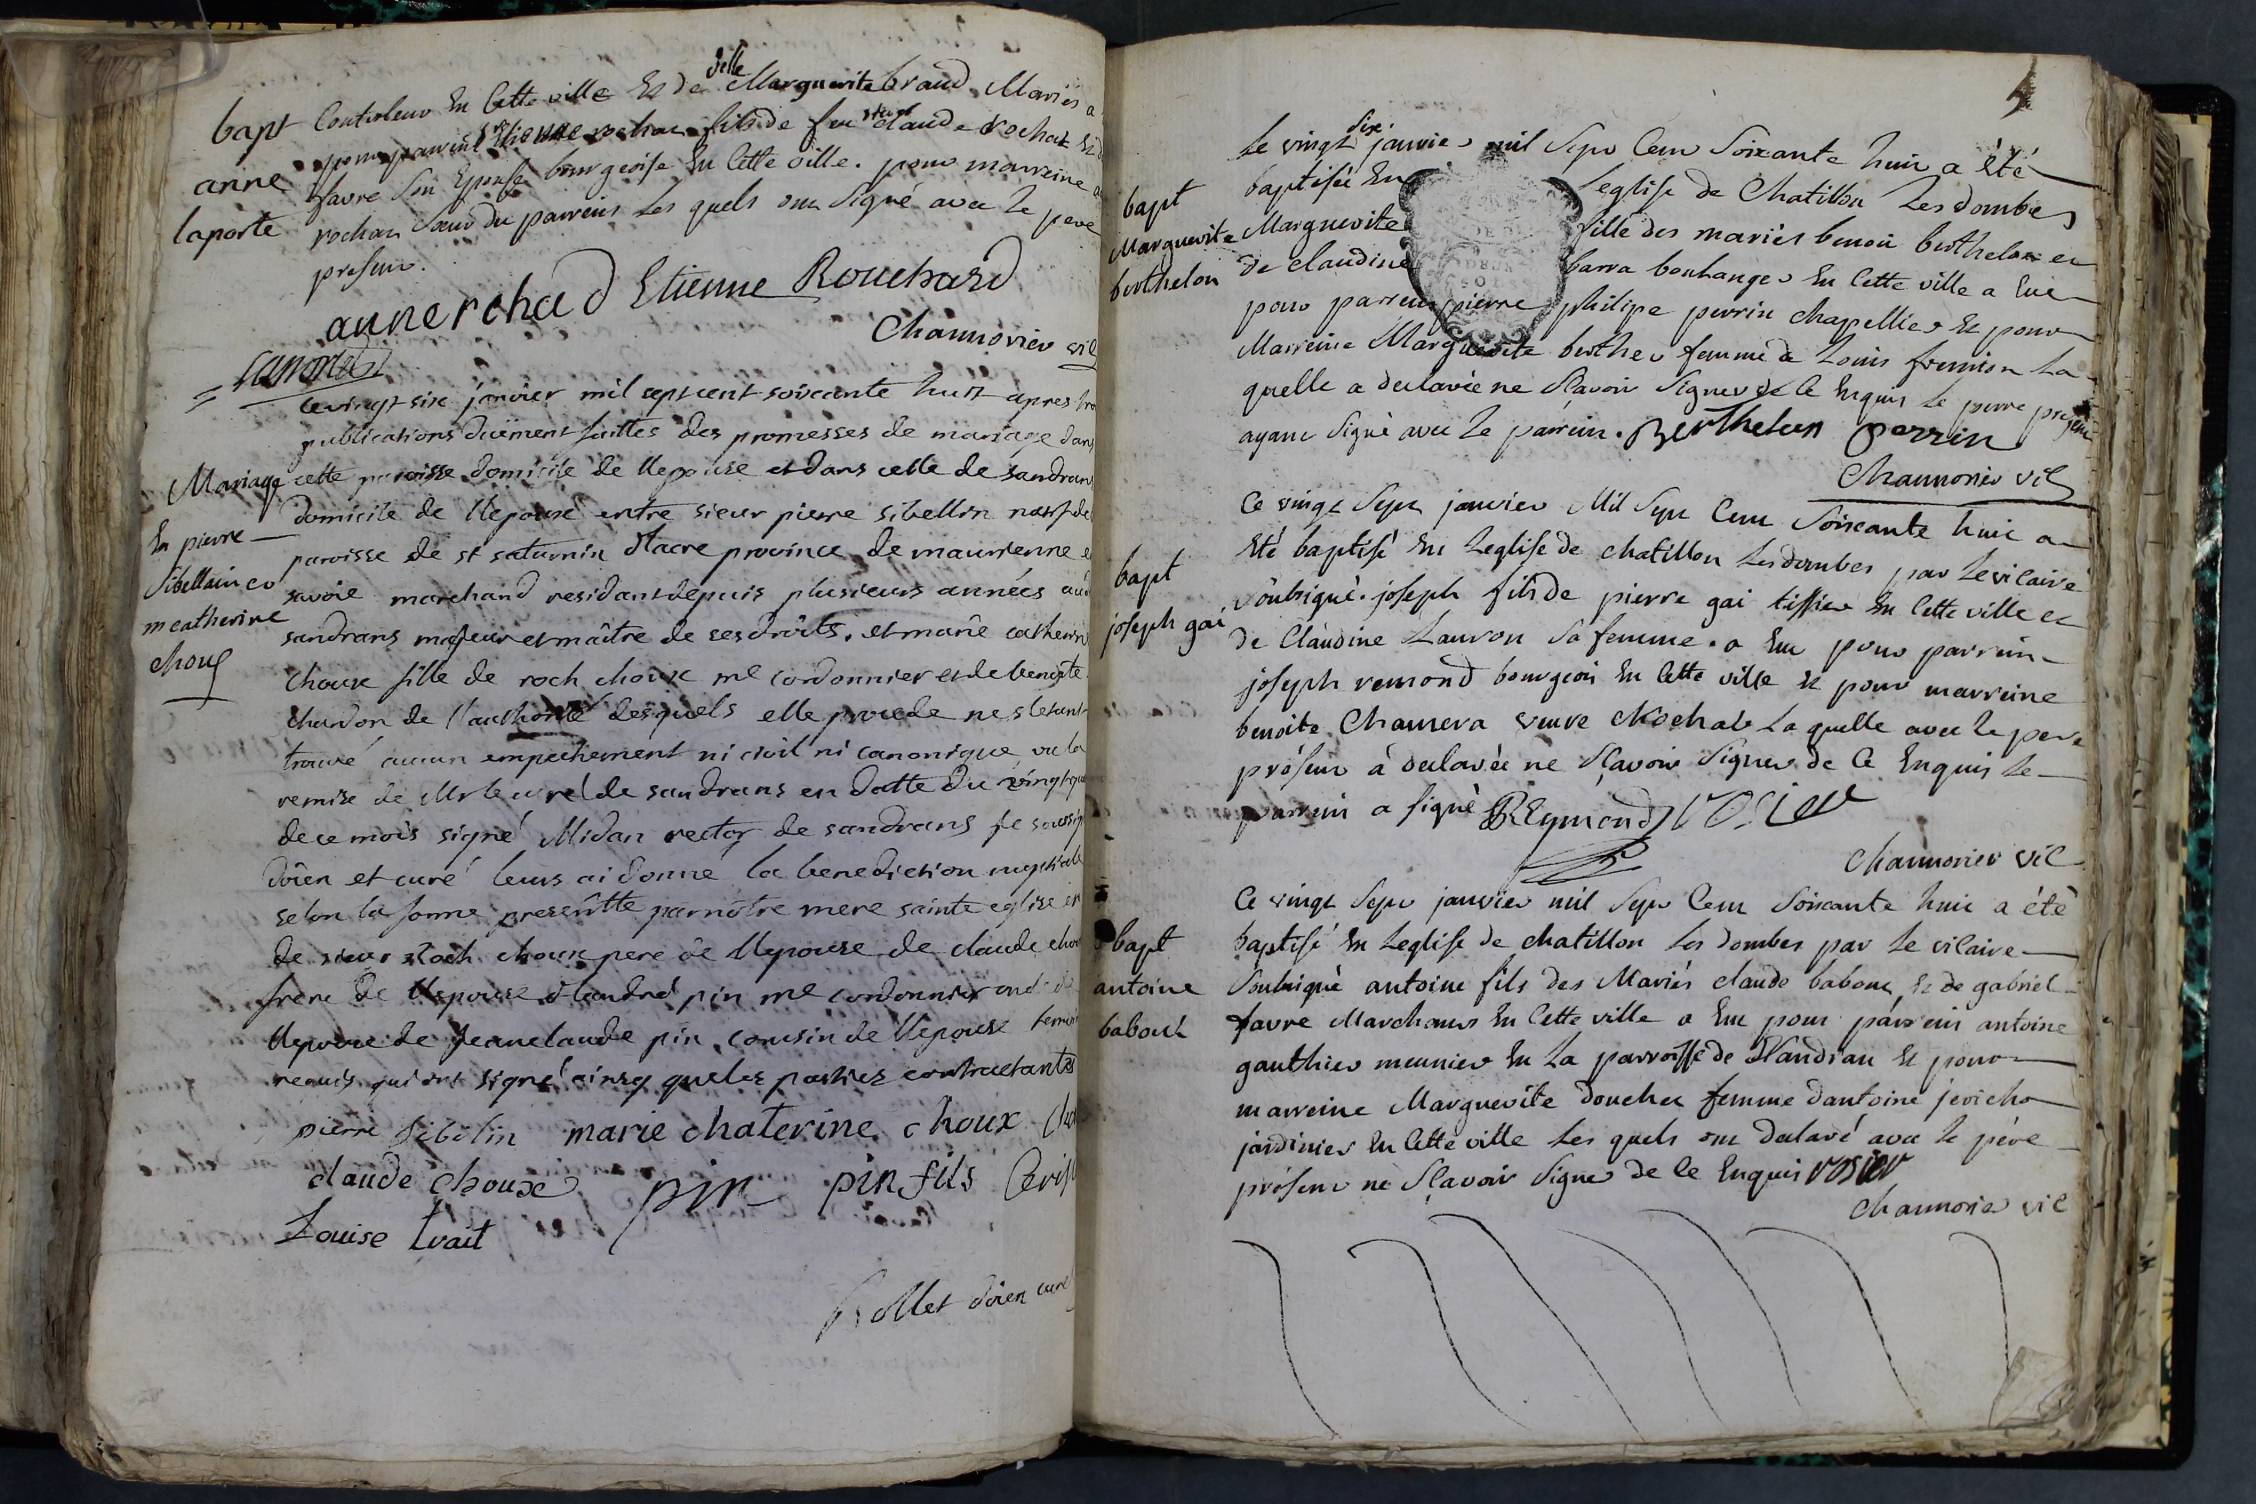 bapt
anne
laporte
Controleur En Cette ville Et de delle Marguerite braud Mariés a
pour parrein Sr Etienne rochar fils de feu sieur claude rochar Et d
favre Son Epouse bourgeoise En Cette ville. pour marreine a
rochar Sœur du parrein Les quels ont Signé avec Le pere
present.
anne rchad Etienne Rouchard
Chaumorier vic
Mariage
En pierre
Sibellain et
m catherine
choux
le vingt six janvier mil sept cent soixante huit apres tro
publications duëment faittes des promesses de mariage dans
cette paroisse domicile de l'epouse et dans celle de sandrans
domicile de l'epoux entre sieur pierre sibellin natif de
paroisse de st saturnin d'acre province de maurienne e
savoie marchand residant depuis plusieurs années aud
sandrans majeur et maître de ses droits. et marie catherine
choux fille de roch choux me cordonnier et de benoite
chardon de l'authorité desquels elle procede ne s'etant
trouvé aucun empechement ni civil ni canonique vu la
remise de Mr le curé de sandrans en datte du vingt qua
de ce mois signé Midan rector de sandrans je soussig
doien et curé leurs ai donné la benediction nuptiale
selon la forme prescritte par nôtre mere sainte eglise en
de sieur Roch choux pere de l'epouse de claude chou
frere de l'epouse d'andré pin me cordonnier oncle de
l'epouse de jean claude pin cousin de l'epouse temoin
requis qui ont signé ainsy que les parties contractantes
pierre sibelin marie chaterine choux
claude choux pin pin fils
Louise trait
Rollet doien curé
bapt
Marguerite
berthelon
Le vingt six janvier mil Sept Cent Soixante huit a été
baptisée En Leglise de Chatillon Les dombes
Marguerite fille des mariés benoit berthelon et
de claudine barra boulanger En Cette ville a Eue
pour parrein pierre philipe perrin chapellier Et pour
Marreine Marguerite berthet femme de Louis fremion La
quelle a declarée ne Sçavoir Signer de Ce Enquis Le perre present
ayant Signé avec Le parrein. Berthelon perrin
Chaumorier vic
bapt
joseph gai
Ce vingt Sept janvier Mil Sept Cent Soixante huit a
Eté baptisé En Leglise de chatillon Les dombes par Le vicaire
Soubsigné. joseph fils de pierre gai tissier En Cette ville et
de Claudine Lauron Sa femme. a Eu pour parrein
joseph remond bourgeois En Cette ville Et pour marreine
benoite Chamera veuve Rochat La quelle avec Le pere
présent à declarée ne Sçavoir Signer de Ce Enquis Le
parrein a signé REymond rosier
Chaumorier vic
bapt
antoine
babout
Ce vingt Sept janvier mil Sept Cent Soixante huit a été
baptisé En Leglise de chatillon Les dombes par Le vicaire
Soubsigné antoine fils des Mariés claude babout Et de gabriel
favre Marchands En Cette ville a Eu pour parrein antoine
gauthier meunier En La parroisse de Slandran Et pour
marreine Marguerite douchet femme dantoine jericho
jardinier En Cette ville Les quels ont declaré avec Le pére
présent ne Sçavoir Signer de Ce Enquis rosier
Chaumorier vic